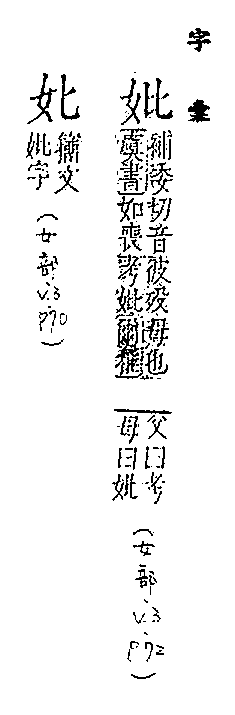 字彙
妣
補委切音彼歿母也
虞書如喪考妣爾雅
父曰考
母曰妣
(女部.v.3.p.72)
㚰
籀文
妣字
(女部.v.3.p.70)